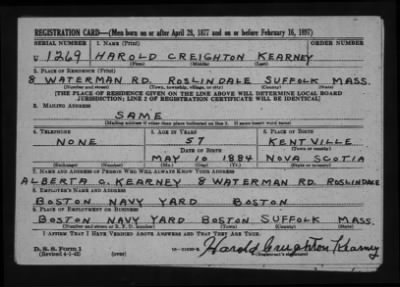 REGISTRATION CARD—(Men born on or after April 28, 1877 and on or before February 16, 1897)
SERIAL NUMBER 1. NAME (Print) ORDER NUMBER
U 1269 HAROLD CREIGHTON KEARNEY
(First) (Middle) (Last)
2. PLACE OF RESIDENCE (Print)
8 WATERMAN RD. ROSLINDALE SUFFOLK MASS.
(Number and street) (Town, township, village, or city) (County) (State)
[THE PLACE OF RESIDENCE GIVEN ON THE LINE ABOVE WILL DETERMINE LOCAL BOARD
JURISDICTION; LINE 2 OF REGISTRATION CERTIFICATE WILL BE IDENTICAL]
3. MAILING ADDRESS
SAME
[Mailing address if other than place indicated on line 2. If same insert word same]
4. TELEPHONE 5. AGE IN YEARS 6. PLACE OF BIRTH
NONE 57 KENTVILLE
DATE OF BIRTH (Town or county)
MAY 10 1884 NOVA SCOTIA
(Exchange) (Number) (Mo.) (Day) (Yr.) (State or country)
7. NAME AND ADDRESS OF PERSON WHO WILL ALWAYS KNOW YOUR ADDRESS
ALBERTA G. KEARNEY 8 WATERMAN RD. ROSLINDALE
8. EMPLOYER'S NAME AND ADDRESS
BOSTON NAVY YARD BOSTON
9. PLACE OF EMPLOYMENT OR BUSINESS
BOSTON NAVY YARD BOSTON SUFFOLK MASS.
(Number and street or R. F. D. number) (Town) (County) (State)
I AFFIRM THAT I HAVE VERIFIED ABOVE ANSWERS AND THAT THEY ARE TRUE.
D. S. S. Form 1
(Revised 4-1-42) (over) Harold Creighton Kearney
(Registrant's signature)